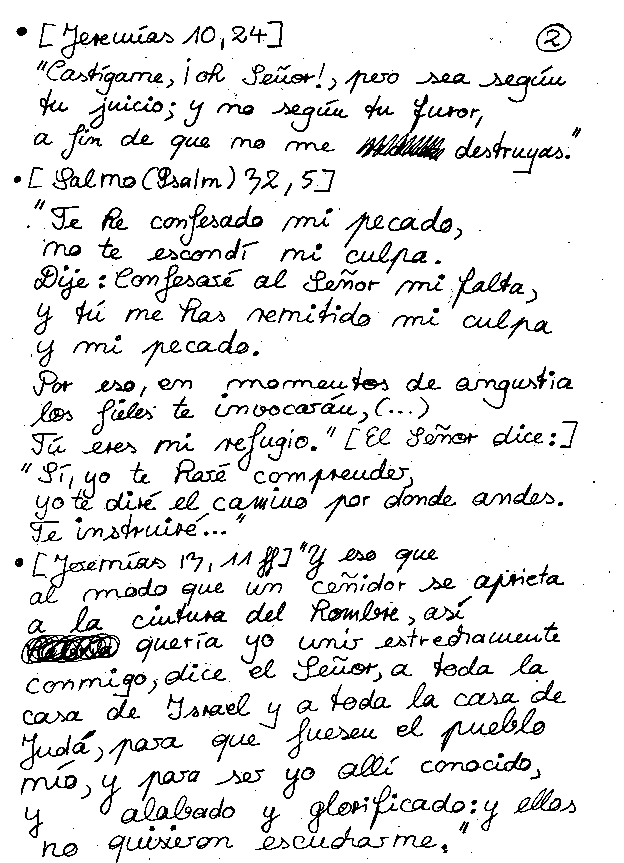 • [Jeremías 10,24] ②
"Castígame, ¡oh Señor!, pero sea según
tu juicio; y no según tu furor,
a fin de que no me destruyas."
• [Salmo (Psalm) 32,5]
"Te he confesado mi pecado,
no te escondí mi culpa.
Dije: Confesaré al Señor mi falta,
y tú me has remitido mi culpa
y mi pecado.
Por eso, en momentos de angustia
los fieles te invocarán, (...)
Tú eres mi refugio." [El Señor dice:]
"Sí, yo te haré comprender,
yo te diré el camino por donde andes.
Te instruiré..."
• [Jeremías 13, 11 ff] "Y eso que
al modo que un ceñidor se aprieta
a la cintura del hombre, así
quería yo unir estrechamente
conmigo, dice el Señor, a toda la
casa de Israel y a toda la casa de
Judá, para que fuesen el pueblo
mío, y para ser yo allí conocido,
y alabado y glorificado: y ellos
no quisieron escucharme."